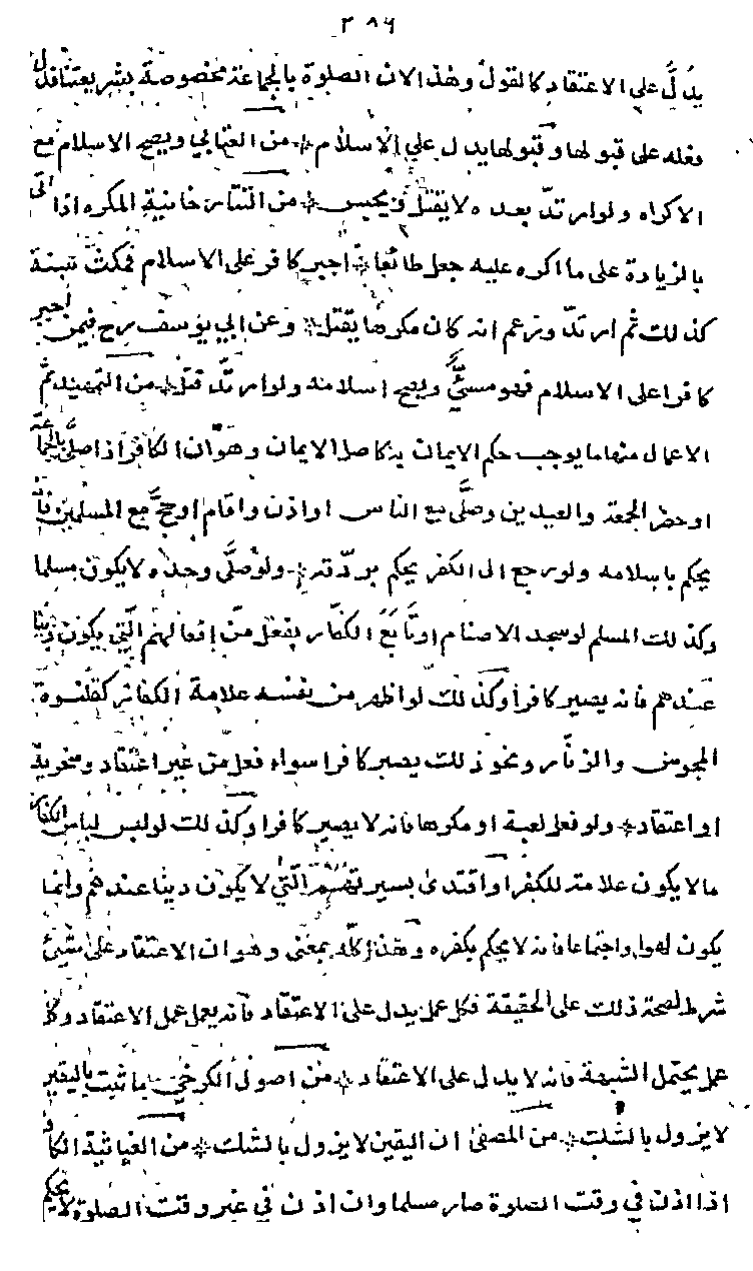 ٣٨٦
يدلّ على الاعتقاد كالقول وهذا لان الصلوة بالجماعة مخصوصة بشريعتنا فدل
فعله على قبولها وقبولها يدل على الاسلام * من العتابي ويصح الاسلام مع
الاكراه ولو ارتدّ بعده لا يقتل ويحبس * من النتار خانية المكره اذا اتى
بالزيادة على ما اكره عليه جعل طائعا * اجبر كافر على الاسلام فمكث سنة
كذلك ثم ارتدّ وزعم انه كان مكرها يقتل * وعن ابي يوسف رح فيمن اجبر
كافرا على الاسلام فهو مسيئ ويصح اسلامه ولو ارتدّ قتل * من التمهيد ثم
الاعمال منها ما يوجب حكم الايمان كاصل الايمان وهو ان الكافر اذا صلى بالجماعة
او حضر الجمعة والعيدين وصلّى مع الناس او اذن واقام او حجّ مع المسلمين فانه
يحكم باسلامه ولو رجع الى الكفر يحكم بردّته * ولو صلّى وحده لا يكون مسلما
وكذلك المسلم لو سجد الاصنام او تابع الكفار بفعل من افعالهم التي يكون دينا
عندهم فانه يصير كافرا وكذلك لو اظهر من نفسه علامة الكفار كقلنسوة
المجوس والزنّار ونحو ذلك يصير كافرا سواء فعل من غير اعتقاد وسخرية
او اعتقاد * ولو فعل لعبة او مكرها فانه لا يصير كافرا وكذلك لو لبس لباس الكفار
ما لا يكون علامة للكفر او اقتدى بسيرتهم التي لا يكون دينا عندهم وانما
يكون لهوا واجتماعا فانه لا يحكم بكفره وهذا كله بمعنى وهو ان الاعتقاد على شيئ
شرط لصحة ذلك على الحقيقة فكل عمل يدل على الاعتقاد فانه يعمل عمل الاعتقاد وكل
عمل يحتمل الشبهة فانه لا يدل على الاعتقاد * من اصول الكرخي ما ثبت باليقين
لا يزول بالشك * من المصفى ان اليقين لا يزول بالشك * من الغياثية الكافر
اذا اذن في وقت الصلوة صار مسلما وان اذن في غير وقت الصلوة لا يحكم